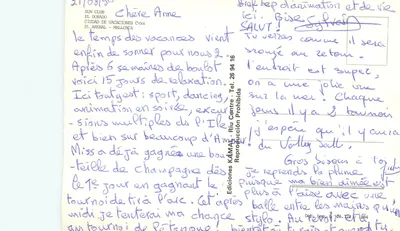 21/08/
SON CLUB
EL DORADO
CIUDAD DE VACACIONES
EL ARENAL - MALLORCA
Chère Anne
le temps des vacances vient
enfin de sonner pour nous 2
Après 6 semaines de boulot
voici 15 jours de relaxation
Ici tout y est : sport, dancing,
animation en soirée, excur-
sions multiples de l'Ile
et bien sur beaucoup d'Am
Miss a déjà gagnée une bou
-teille de champagne dès
le 1er jour en gagnant le
tournoi de tir à l'arc. Cet après
midi je tenterai ma chance
au tournoi de
Ediciones KAMAL - Rip Centre - Tel. 26 94 16
Reproducción Prohibida
bref d'animation et de vie
ici. Bise Sylvain
SALUT!
Tu verras comme il sera
rouge au retour.
l'endroit est super,
on a une jolie vue
sur la mer. Chaque
jour il y a 2 tournois
j'espère qu'il y aura
du Volley Ball.
Gros bisous à
je reprends la plume
puisque ma bien aimée est
plus à l'aise avec une
balle entre les mains qu'
stylo. Au
bientôt